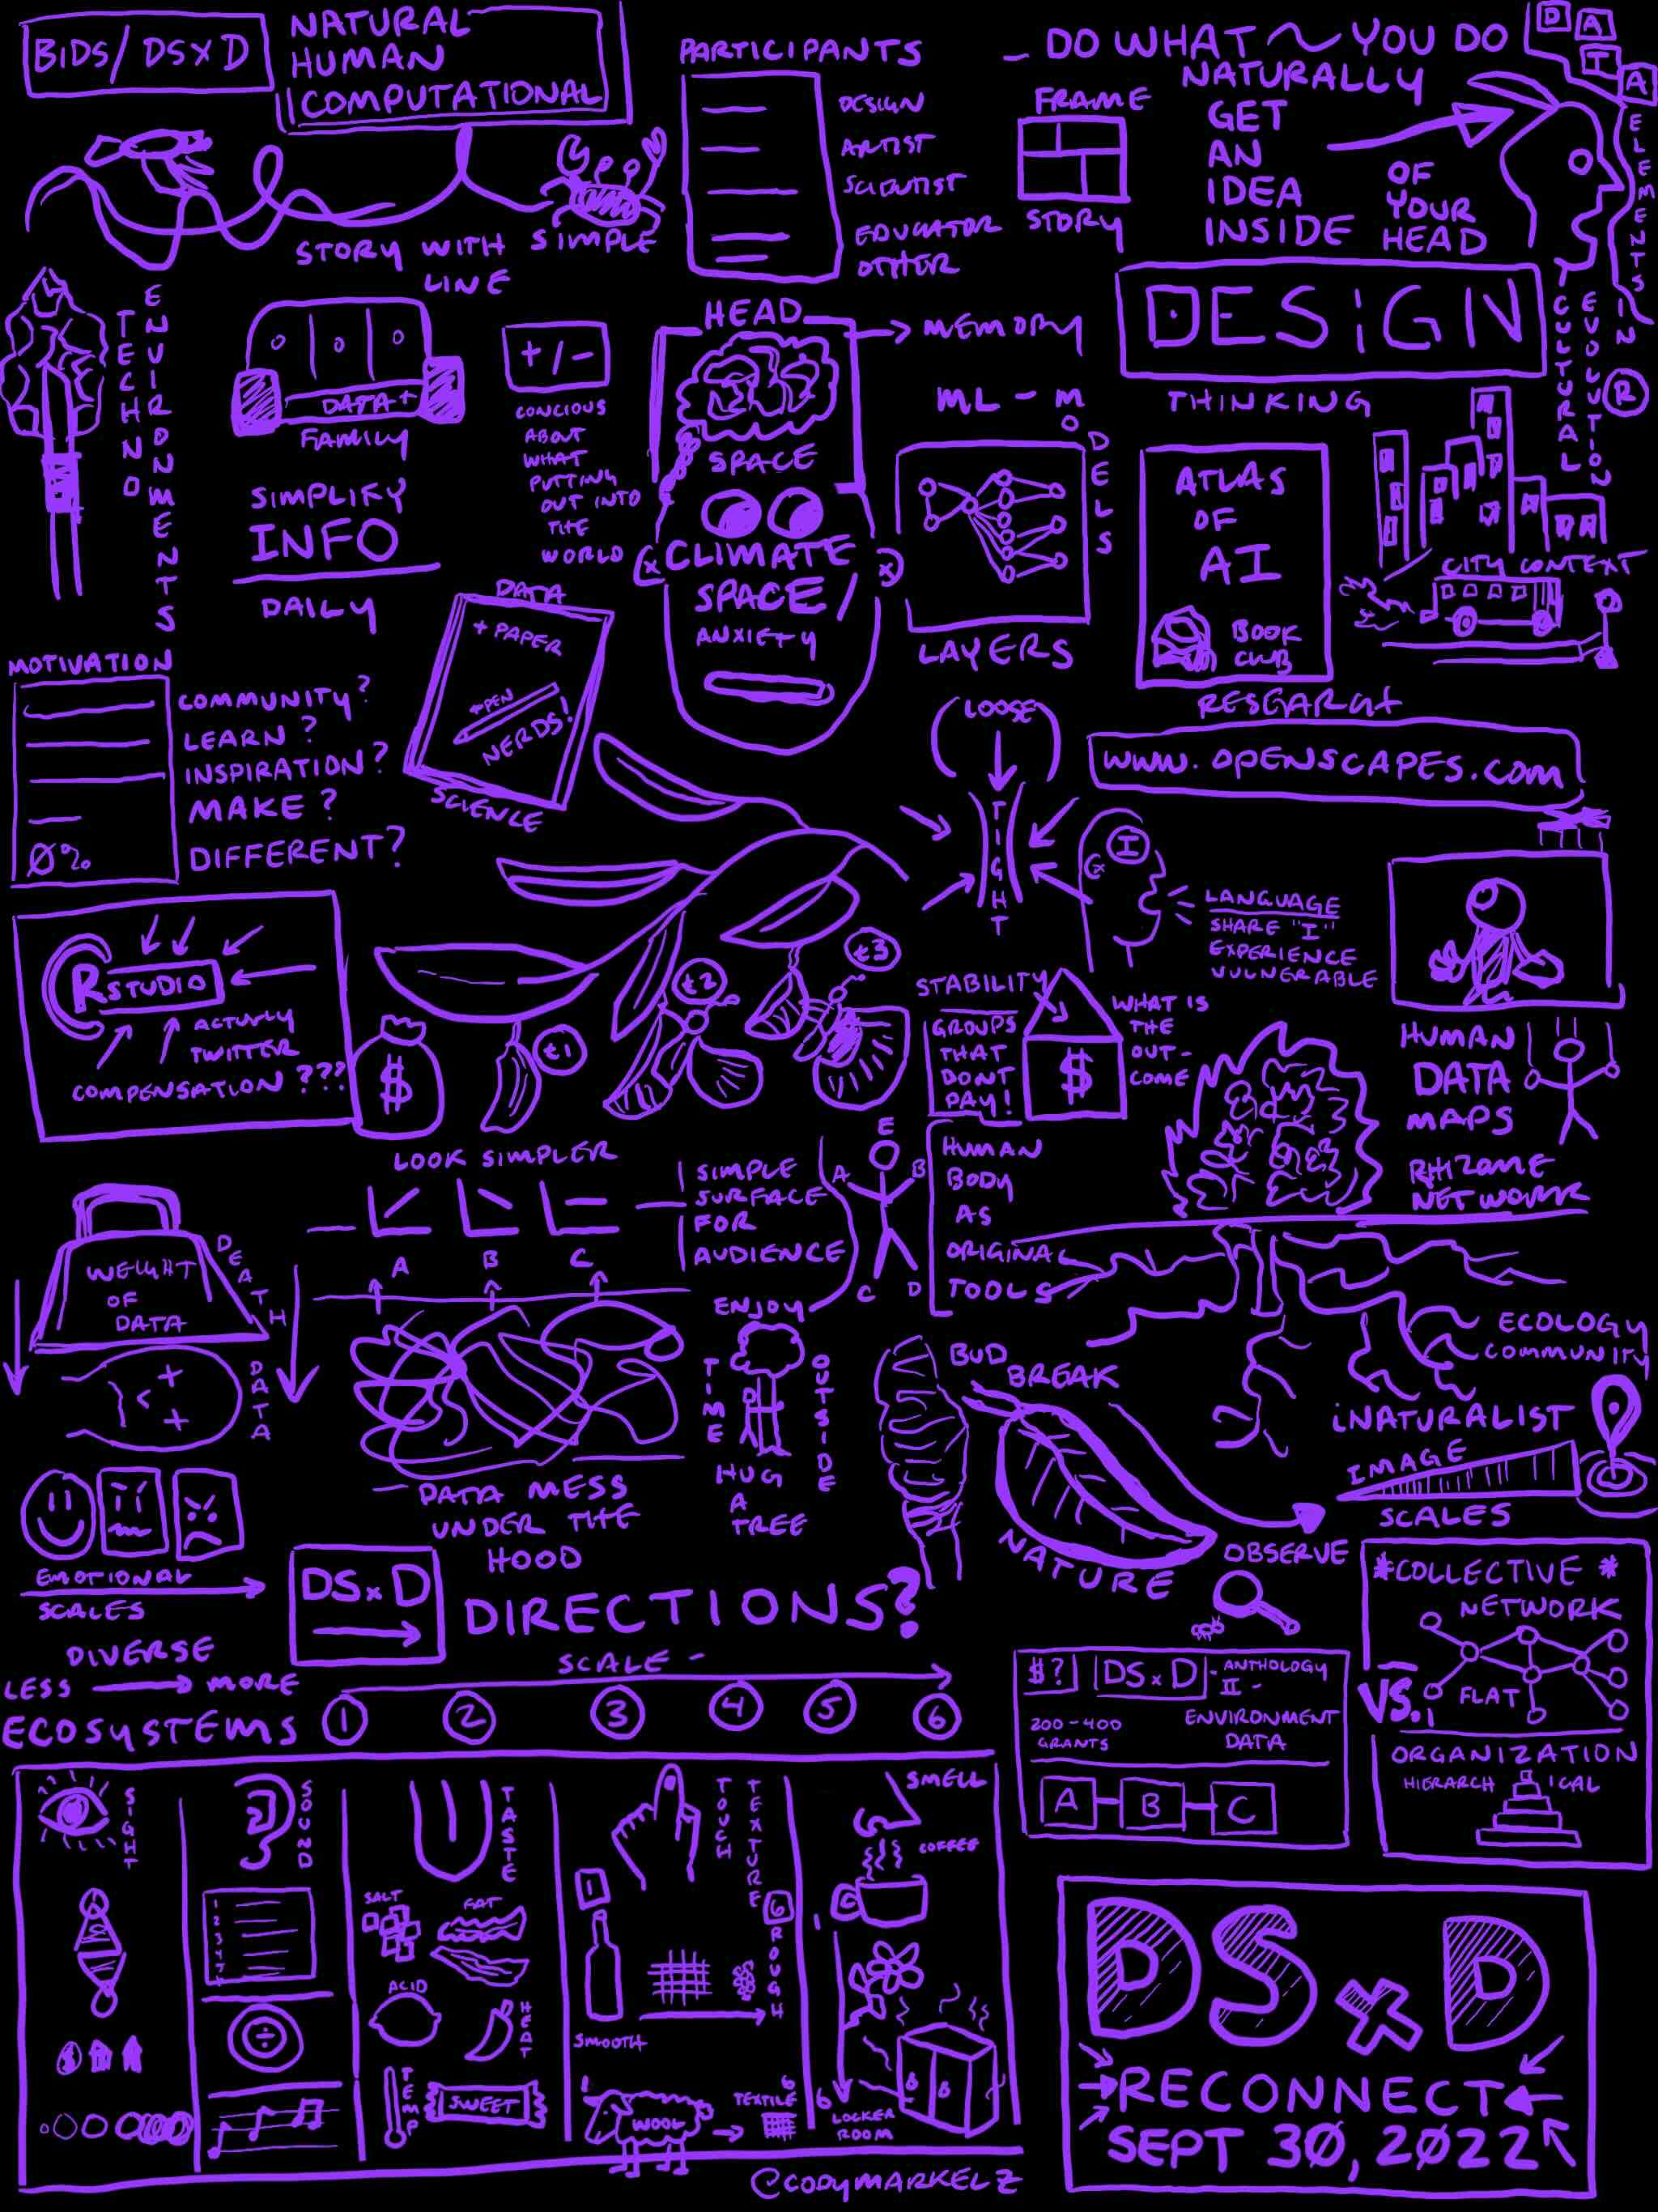 BIDS/DSxD
NATURAL
HUMAN
COMPUTATIONAL
STORY WITH SIMPLE
LINE
PARTICIPANTS
DESIGN
ARTIST
SCIENTIST
EDUCATOR
OTHER
FRAME
STORY
DO WHAT ~ YOU DO
NATURALLY
GET
AN
IDEA
INSIDE
OF
YOUR
HEAD
DATA
ELEMENTS IN
R
CULTURAL
EVOLUTION
DESIGN
THINKING
TECHNO
ENVIRONMENTS
DATA+
FAMILY
SIMPLIFY
INFO
DAILY
+/-
CONCIOUS
ABOUT
WHAT
PUTTING
OUT INTO
THE
WORLD
HEAD
SPACE
MEMORY
CLIMATE
SPACE/
ANXIETY
ML - MODELS
LAYERS
ATLAS
OF
AI
BOOK
CLUB
RESEARCH
CITY CONTEXT
MOTIVATION
COMMUNITY?
LEARN?
INSPIRATION?
MAKE?
DIFFERENT?
0%
DATA
+ PAPER
+PEN
NERDS!
SCIENCE
(LOOSE)
TIGHT
WWW.OPENSCAPES.COM
I
LANGUAGE
SHARE "I"
EXPERIENCE
VULNERABLE
RSTUDIO
ACTUALLY
TWITTER
COMPENSATION???
$
t1
t2
t3
STABILITY
GROUPS
THAT
DONT
PAY!
$
WHAT IS
THE
OUT-
COME
HUMAN
DATA
MAPS
RHIZOME
NETWORK
LOOK SIMPLER
A
B
C
SIMPLE
SURFACE
FOR
AUDIENCE
DATA MESS
UNDER THE
HOOD
E
A
B
C
D
HUMAN
BODY
AS
ORIGINAL
TOOLS
WEIGHT
OF
DATA
DEATH
DATA
ENJOY
TIME
OUTSIDE
HUG
A
TREE
BUD
BREAK
NATURE
OBSERVE
ECOLOGY
COMMUNITY
iNATURALIST
IMAGE
SCALES
EMOTIONAL
SCALES
DIVERSE
LESS → MORE
ECOSYSTEMS
DSxD
DIRECTIONS?
SCALE -
1 2 3 4 5 6
$?
DSxD
- ANTHOLOGY
II -
200-400
GRANTS
ENVIRONMENT
DATA
A-B-C
*COLLECTIVE*
NETWORK
FLAT
VS.
ORGANIZATION
HIERARCHICAL
SIGHT
SOUND
1
2
3
4
÷
TASTE
SALT
FAT
ACID
HEAT
TEMP
SWEET
TOUCH
TEXTURE
1
6
ROUGH
SMOOTH
WOOL
TEXTILE
6
SMELL
COFFEE
1
6
LOCKER
ROOM
@CODYMARKELZ
DSxD
RECONNECT
SEPT 30, 2022